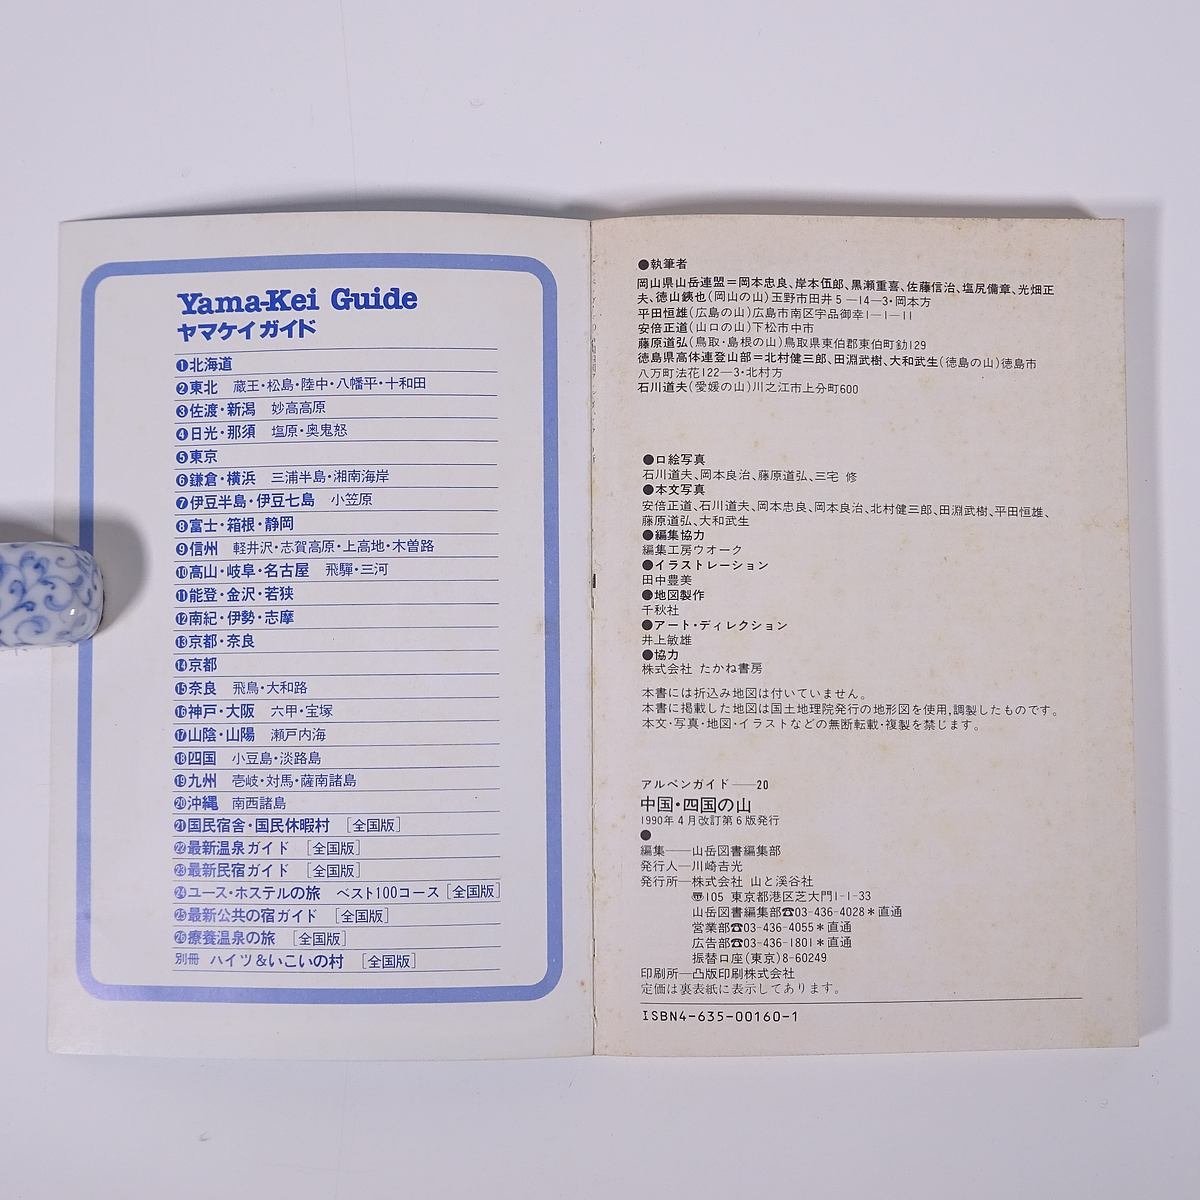 Yama-Kei Guide
ヤマケイガイド
❶北海道
❷東北 蔵王・松島・陸中・八幡平・十和田
❸佐渡・新潟 妙高高原
❹日光・那須 塩原・奥鬼怒
❺東京
❻鎌倉・横浜 三浦半島・湘南海岸
❼伊豆半島・伊豆七島 小笠原
❽富士・箱根・静岡
❾信州 軽井沢・志賀高原・上高地・木曽路
❿高山・岐阜・名古屋 飛騨・三河
⓫能登・金沢・若狭
⓬南紀・伊勢・志摩
⓭京都・奈良
⓮京都
⓯奈良 飛鳥・大和路
⓰神戸・大阪 六甲・宝塚
⓱山陰・山陽 瀬戸内海
⓲四国 小豆島・淡路島
⓳九州 壱岐・対馬・薩南諸島
⓴沖縄 南西諸島
㉑国民宿舎・国民休暇村 [全国版]
㉒最新温泉ガイド [全国版]
㉓最新民宿ガイド [全国版]
㉔ユース・ホステルの旅 ベスト100コース [全国版]
㉕最新公共の宿ガイド [全国版]
㉖療養温泉の旅 [全国版]
別冊 ハイツ&いこいの村 [全国版]
●執筆者
岡山県山岳連盟=岡本忠良、岸本伍郎、黒瀬重喜、佐藤信治、塩尻備章、光畑正
夫、徳山銕也(岡山の山)玉野市田井5―14―3・岡本方
平田恒雄(広島の山)広島市南区宇品御幸1―1―11
安倍正道(山口の山)下松市中市
藤原道弘(鳥取・島根の山)鳥取県東伯郡東伯町釛129
徳島県高体連登山部=北村健三郎、田淵武樹、大和武生(徳島の山)徳島市
八万町法花122―3・北村方
石川道夫(愛媛の山)川之江市上分町600
●口絵写真
石川道夫、岡本良治、藤原道弘、三宅 修
●本文写真
安倍正道、石川道夫、岡本忠良、岡本良治、北村健三郎、田淵武樹、平田恒雄、
藤原道弘、大和武生
●編集協力
編集工房ウオーク
●イラストレーション
田中豊美
●地図製作
千秋社
●アート・ディレクション
井上敏雄
●協力
株式会社 たかね書房
本書には折込み地図は付いていません。
本書に掲載した地図は国土地理院発行の地形図を使用,調製したものです。
本文・写真・地図・イラストなどの無断転載・複製を禁じます。
アルペンガイド――20
中国・四国の山
1990年4月改訂第6版発行
●
編集――山岳図書編集部
発行人―川崎吉光
発行所―株式会社 山と溪谷社
〠105 東京都港区芝大門1-1-33
山岳図書編集部☎03-436-4028*直通
営業部☎03-436-4055*直通
広告部☎03-436-1801*直通
振替口座(東京)8-60249
印刷所―凸版印刷株式会社
定価は裏表紙に表示してあります。
ISBN4-635-00160-1